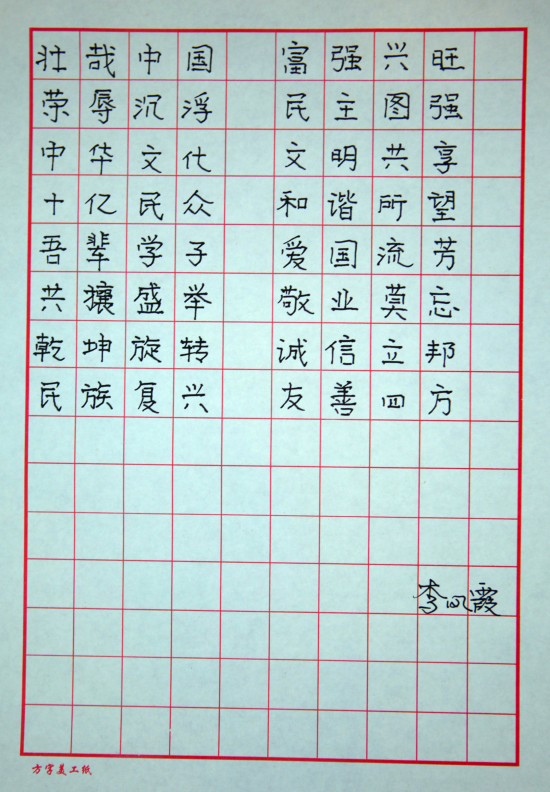 壮哉中国 富强兴旺
荣辱沉浮 民主图强
中华文化 文明共享
十亿民众 和谐所望
吾辈学子 爱国流芳
共襄盛举 敬业莫忘
乾坤旋转 诚信立邦
民族复兴 友善四方
李凤霞
方字美工纸